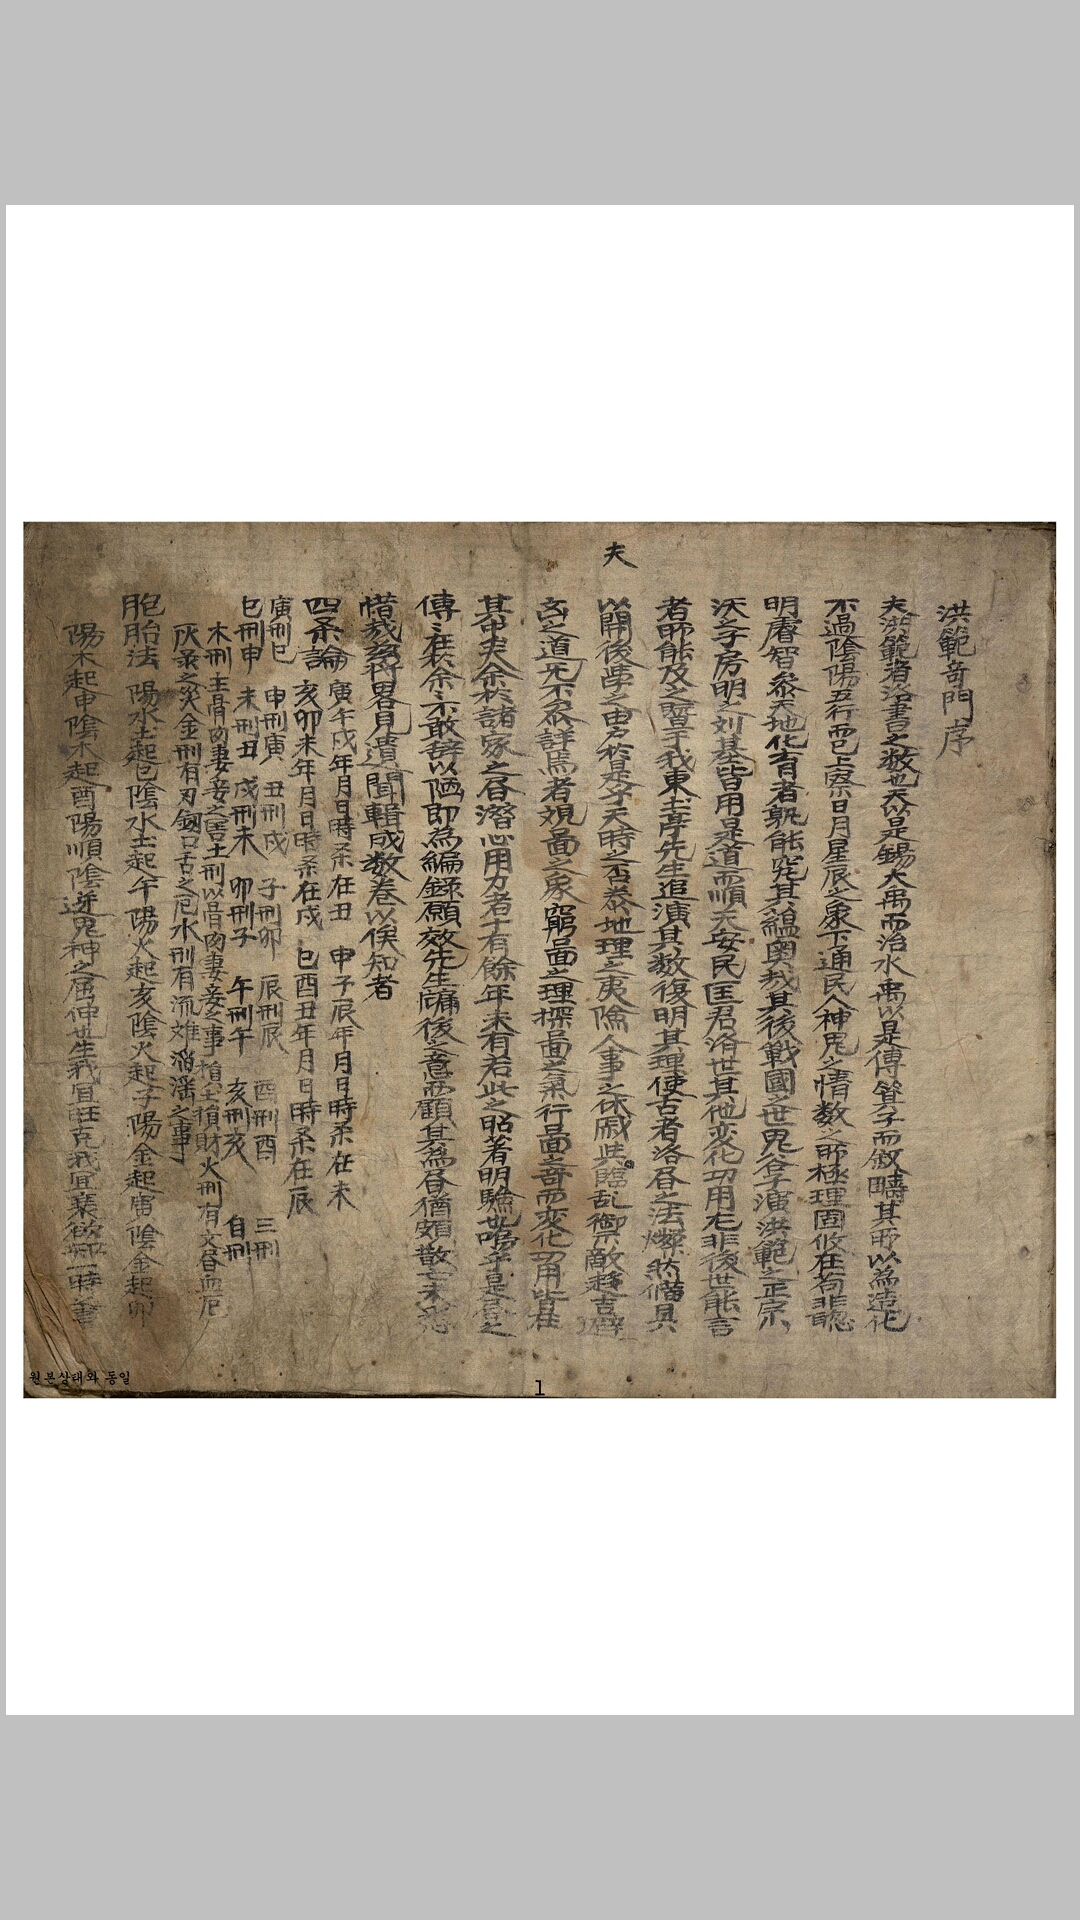 夫
洪範奇門序
夫洪範者洛書之数也天以是錫大禹而治水禹以是傅箕子而敘疇其所以為造化
不過陰陽五行而已上察日月星辰之象下通民人神鬼之情数之所極理固攸在苟非聡
明睿智参天地化育者孰能究其蘊奥哉其後戰國之世鬼谷子演洪範之正宗
沃子房明之刘基皆用是道而順天安民匡君済世其他変化功用尤非後世能言
者所能及之暨于我東土亭先生追演其数復明其理使古者洛書之法燦然俻具
以開後學之由户於是乎天時之否泰地理之夷險人事之休戚與臨乱御敵趍吉避
凶之道无不衆詳焉者覌啚之象窮啚之理探啚之氣行啚之奇而変化功用皆在
其中夫余於諸家之書潛心用力者十有餘年未有若此之昭著明驗也嗚乎是書之
傳余不敢辞以陋即為編錄願效先生牖後之意而顧其為書猶頗散
惜哉玆将畧見遺聞輯成数卷以俟知者
四条論 寅午戌年月日時条在丑 申子辰年月日時条在未
亥卯未年月日時条在戌 巳酉丑年月日時条在辰
寅刑巳 申刑寅 丑刑戌 子刑卯 辰刑辰 酉刑酉 三刑
巳刑申 未刑丑 戌刑未 卯刑子 午刑午 亥刑亥 自刑
木刑主骨肉妻妾之害土刑以骨肉妻妾之事損主損財火刑有文書血厄
灰衆之災金刑有刃劔口舌之厄水刑有流难滔滛之事
胞胎法 陽水土起巳陰水土起午陽火起亥陰火起子陽金起寅陰金起卯
陽木起申陰木起酉陽順陰逆鬼神之屈伸也生我宜旺克我宜衰欲知一時害
원본상태와 동일
1